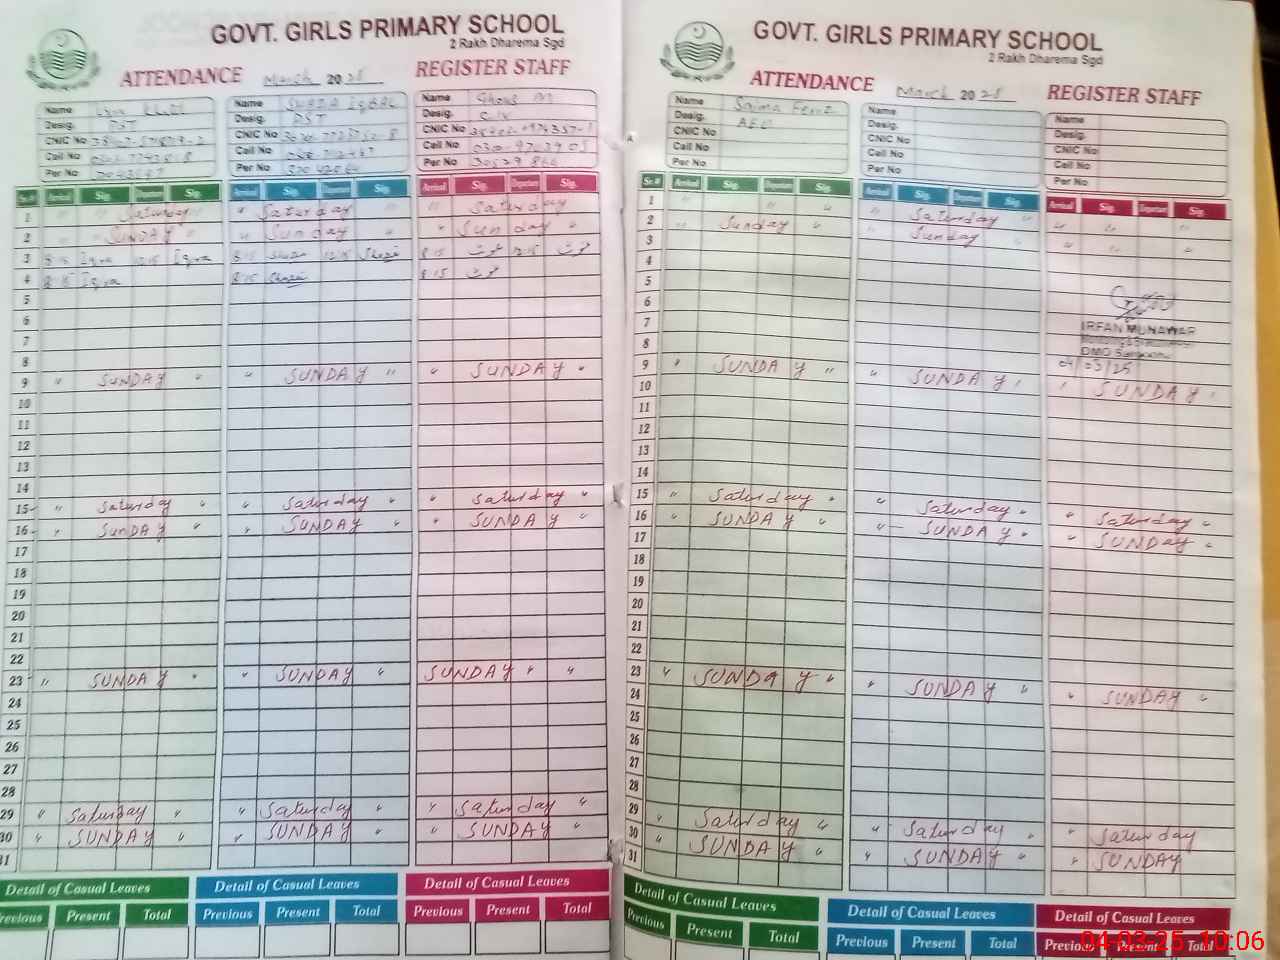 GOVT. GIRLS PRIMARY SCHOOL
2 Rakh Dharema Sgd
ATTENDANCE March 2025 REGISTER STAFF
Name
Desig. PST
CNIC No
Cell No
Per No
Name Iqbal
Desig. PST
CNIC No
Cell No
Per No
Name
Desig.
CNIC No
Cell No
Per No
Sr.# Arrival Sig. Departure Sig. Arrival Sig. Departure Sig. Arrival Sig. Departure Sig.
1 " " Saturday " " Saturday " " Saturday
2 " " SUNDAY " Sunday " " Sunday "
3 8 15 Iqra 12 15 Iqra 8 15 12 15 8 15 12 15
4 8 15 Iqra 8 15 8 15
5
6
7
8
9 " SUNDAY " " SUNDAY " " SUNDAY "
10
11
12
13
14
15 " Saturday " " Saturday " " Saturday "
16 " SUNDAY " " SUNDAY " " SUNDAY "
17
18
19
20
21
22
23 " SUNDAY " " SUNDAY " SUNDAY " "
24
25
26
27
28
29 " Saturday " " Saturday " " Saturday "
30 " SUNDAY " " SUNDAY " " SUNDAY "
31
Detail of Casual Leaves Detail of Casual Leaves Detail of Casual Leaves
Previous Present Total Previous Present Total Previous Present Total
GOVT. GIRLS PRIMARY SCHOOL
2 Rakh Dharema Sgd
ATTENDANCE March 2025 REGISTER STAFF
Name Saima
Desig. AEO
CNIC No
Cell No
Per No
Name
Desig.
CNIC No
Cell No
Per No
Name
Desig.
CNIC No
Cell No
Per No
Sr.# Arrival Sig. Departure Sig. Arrival Sig. Departure Sig. Arrival Sig. Departure Sig.
1 " " " " Saturday " " " "
2 " Sunday " Sunday " " " "
3
4
5
6
7
8
IRFAN MUNAWAR
DMO
04/03/25
9 " SUNDAY " " SUNDAY " " SUNDAY "
10
11
12
13
14
15 " Saturday " " Saturday " " Saturday "
16 " SUNDAY " " SUNDAY " " SUNDAY "
17
18
19
20
21
22
23 " SUNDAY " " SUNDAY " " SUNDAY "
24
25
26
27
28
29 " Saturday " " Saturday " " Saturday
30 " SUNDAY " " SUNDAY " " SUNDAY
31
Detail of Casual Leaves Detail of Casual Leaves Detail of Casual Leaves
Previous Present Total Previous Present Total Previous Present Total
04-03-25 10:06